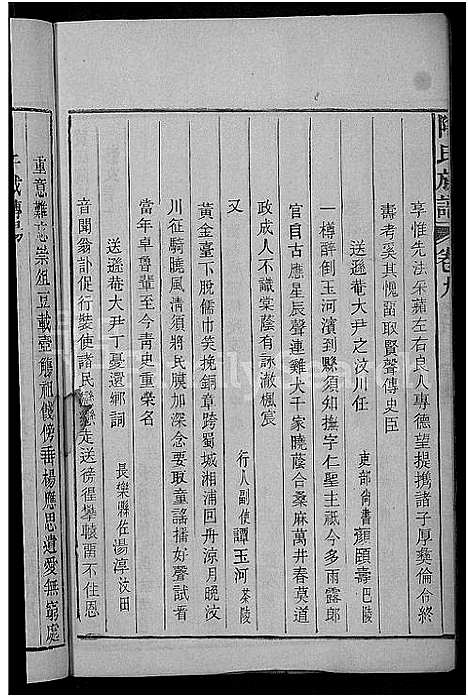 陶氏族譜 卷九
享惟先法采蘋左右良人專德望提携諸子厚彝倫令終
壽考奚其愧留取賢聲傳史臣
送遜菴大尹之汶川任
吏部尚書顏頤壽巴陵
一樽辭倒玉河濱到縣須知撫字仁聖主祇今多雨露郎
官自古應星辰聲連雞犬千家曉蔭合桑麻萬井春莫道
政成人不識棠蔭有詠澈楓宸
又
行人副使譚玉河茶陵
黃金臺下脫儒巾笑挽銅章跨蜀城湘浦回舟涼月晚汶
川征騎曉風清須將民膜加深念要取童謠播好聲試看
當年卓魯輩至今青史重榮名
送遜菴大尹丁憂還鄉詞
長樂縣佐湯淳汶田
音聞翁訃促行裝使諸民戀戀走送徬徨攀轅留不住恩
重意難忘崇組豆載壼觴祖餞傍垂楊應思遺愛無窮處